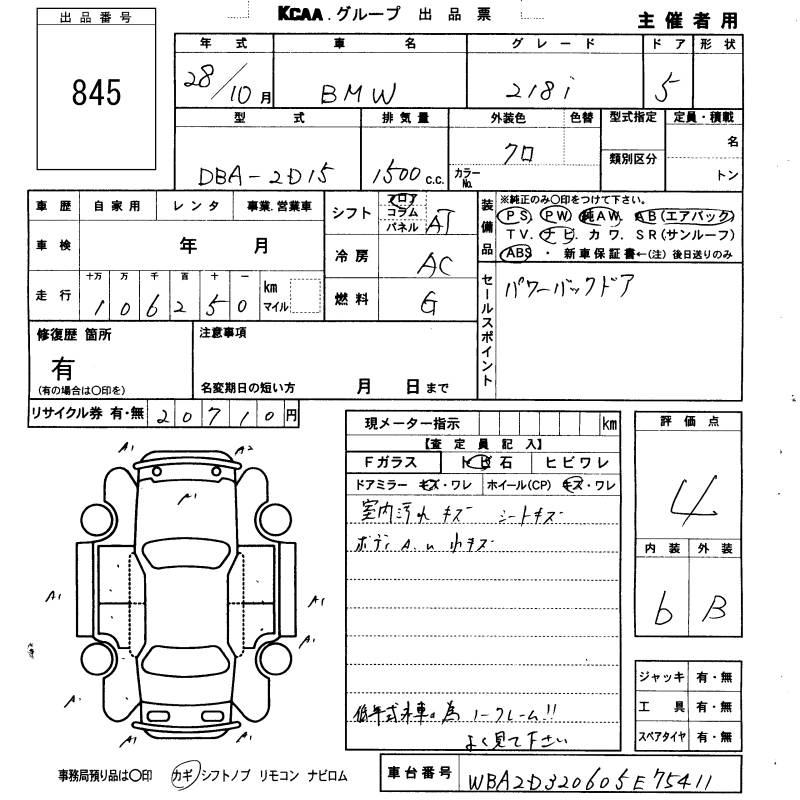 出品番号
845
KCAA.グループ 出品票
主催者用
年式 車名 グレード ドア 形状
28/10月 BMW 218i 5
型式 排気量 外装色 色替 型式指定 定員・積載
DBA-2D15 1500c.c. クロ カラーNo. 類別区分 名 トン
車歴 自家用 レンタ 事業.営業車
車検 年 月
走行 十万 万 千 百 十 一
106250 km マイル
シフト フロア コラム パネル AT
冷房 AC
燃料 G
装備品 ※純正のみ〇印をつけて下さい。
PS. PW. 純AW. AB(エアバック)
TV. ナビ. カワ. SR(サンルーフ)
ABS ・ 新車保証書←(注)後日送りのみ
セールスポイント パワーバックドア
修復歴 箇所
有
(有の場合は〇印を)
注意事項
名変期日の短い方 月 日まで
リサイクル券 有・無 20710円
現メーター指示 km
【査定員記入】
Fガラス トビ石 ヒビワレ
ドアミラー キズ・ワレ ホイール(CP) キズ・ワレ
室内汚れ キズ シートキズ
ボディ A.u 小キズ
低年式车車の為 ノークレーム!!
よく見て下さい
評価点
4
内装 外装
b B
ジャッキ 有・無
工具 有・無
スペアタイヤ 有・無
A1 A2
A1
A1 A1
A1
A1 A1
事務局預り品は〇印 カギ シフトノブ リモコン ナビロム
車台番号 WBA2D320605E75411